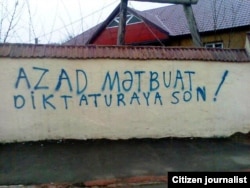 AZAD MƏTBUAT
DİKTATURAYA SON!
Citizen journalist